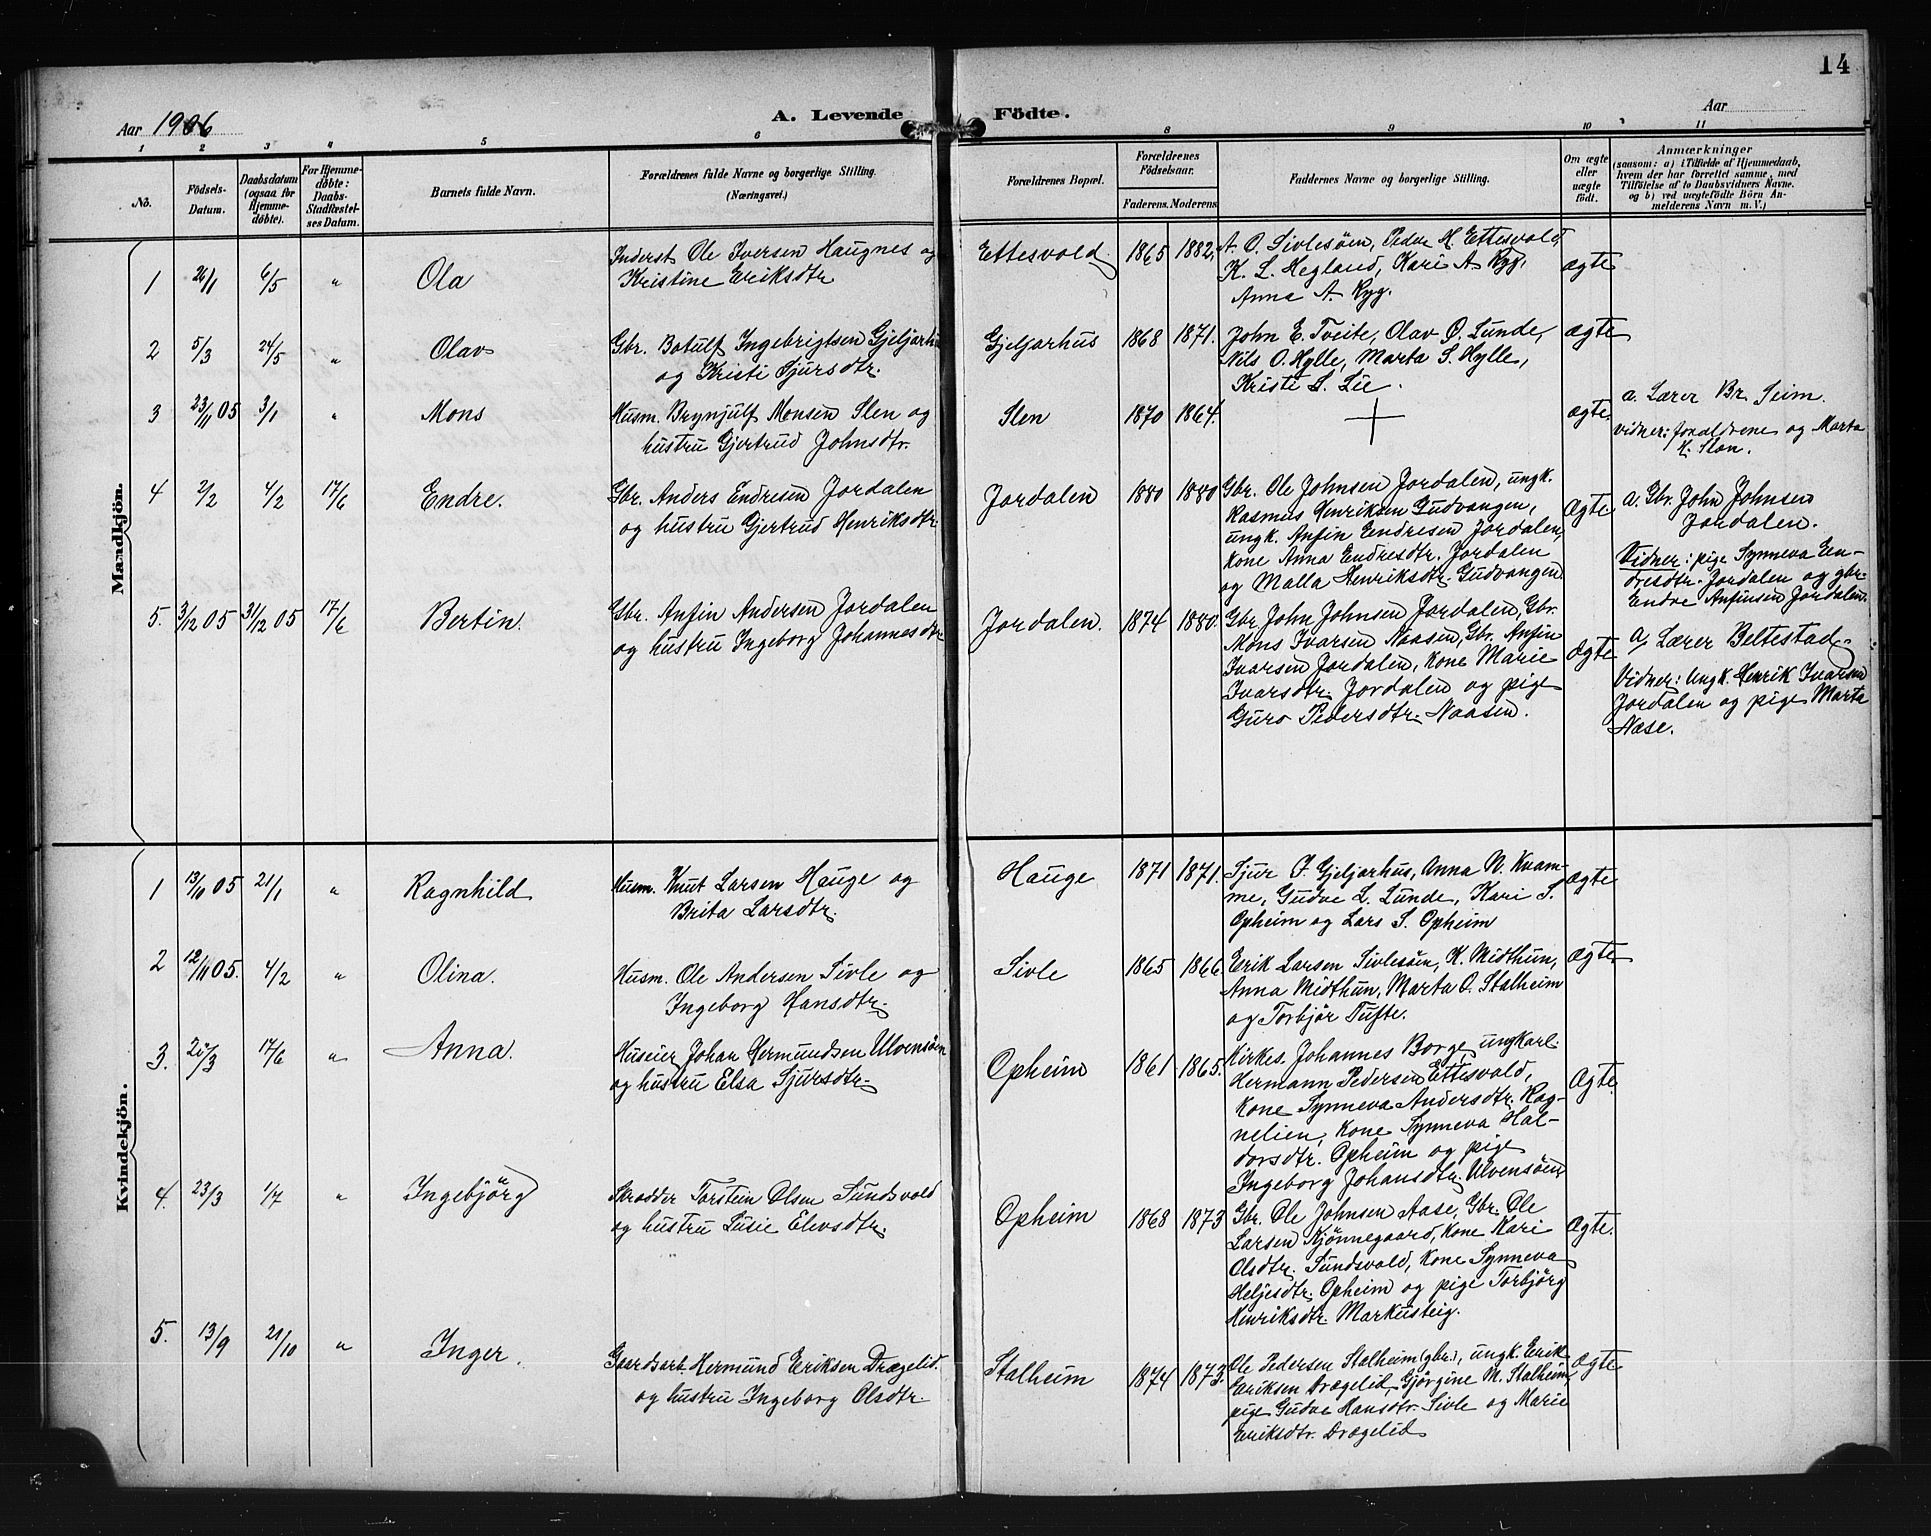 14
Aar 1906
A. Levende Födte.
Aar
1 2 3 4 5 6 8 9 10 11
No.
Födsels-Datum.
Daabsdatum (ogsaa for Hjemmedöbte).
For Hjemmedöbte: Daabs-Stadfæstelses Datum.
Barnets fulde Navn.
Forældrenes fulde Navne og borgerlige Stilling.
(Næringsvei.)
Forældrenes Bopæl.
Forældrenes Födselsaar.
Faderens. Moderens.
Faddernes Navne og borgerlige Stilling.
Om ægte eller uægte födt.
Anmærkninger
(saasom: a) i Tilfælde af Hjemmedaab,
hvem der har forrettet samme, med
Tilföielse af to Daabsvidners Navne.
og b) ved uægtefödte Börn An-
melderens Navn m. V.)
Mandkjön.
1 26/1 6/5 " Ola
Inderst Ole Iversen Haugnes og
Kristine Eriksdtr
Ettesvold 1865 1882.
A. O. Sivlesøen, Peder H. Ettesvold,
K. L. Hegland, Kari A. Ryg,
Anna A. Ryg.
ægte
2 5/3 24/5 " Olav
Gbr. Botulf Ingebrigtsen Gjeljarhus
og Kristi Sjursdtr.
Gjeljarhus 1868 1871.
John E. Tveite, Olav O. Lunde,
Nils O. Hylle, Marta S. Hylle,
Kristi S. Lie.
ægte
3 23/11 05 3/1 " Mons
Husm. Brynjulf Monsen Slen og
hustru Gjertrud Johnsdtr.
Slen 1870 1864.
ægte
a. Lærer Br. Seim.
vidner: forældrene og Marta
K. Slen.
4 2/2 4/2 17/6 Endre.
Gbr. Anders Endresen Jordalen
og hustru Gjertrud Henriksdtr.
Jordalen 1880 1880
Gbr. Ole Johnsen Jordalen, ungk.
Rasmus Henriksen Gudvangen,
ungk. Anfin Endresen Jordalen,
kone Anna Endresdtr. Jordalen
og Malla Henriksdtr. Gudvangen
Ægte
a. Gbr. John Johnsen
Jordalen.
Vidner: pige Synneva En-
dresdtr. Jordalen og gbr.
Endre Anfinsen Jordalen.
5. 3/12 05 31/12 05 17/6 Bertin.
Gbr. Anfin Andersen Jordalen
og hustru Ingeborg Johannesdtr
Jordalen. 1874 1880.
Gbr. John Johnsen Jordalen, Gbr.
Mons Ivarsen Naasen, Gbr. Anfin
Ivarsen Jordalen, kone Marie
Ivarsdtr. Jordalen og pige
Guro Pedersdtr. Naasen.
Ægte
a, Lærer Beltestad.
Vidner: Ungk. Henrik Ivarsen
Jordalen og pige Marta
Næse.
Kvindekjön.
1 13/11 05 21/1 " Ragnhild
Husm. Knut Larsen Hauge og
Brita Larsdtr.
Hauge 1871 1871.
Sjur J. Gjeljarhus, Anna N. Kvam-
me, Gudve L. Lunde, Kari S.
Opheim og Lars S. Opheim
ægte
2 12/11 05. 4/2 " Olina.
Husm. Ole Andersen Sivle og
Ingeborg Hansdtr.
Sivle 1865 1866.
Erik Larsen Sivlesöen, K. Midthun,
Anna Midthun, Marta O. Stalheim
og Torbjør Tufte.
Ægte.
3. 25/3 17/6 " Anna.
Huseier Johan Hermundsen Ulvensöen
og hustru Elsa Sjursdtr.
Opheim 1861 1865.
Kirkes. Johannes Borge, ungkarl
Hermann Pedersen Ettesvold,
kone Synneva Andersdtr. Rag-
nelien, kone Synneva Hal-
dorsdtr. Opheim og pige
Ingeborg Johansdtr. Ulvensöen
Ægte.
4. 23/3 1/7 " Ingebjörg
Skrædder Torstein Olsen Sundsvold
og hustru Susie Elevsdtr.
Opheim 1868 1873
Gbr. Ole Johnsen Aase, Gbr. Ole
Larsen Kjönnegaard, kone Kari
Olsdtr. Sundsvold, kone Synneva
Heljesdtr. Opheim og pige Torbjörg
Henriksdtr. Markusteig.
Ægte.
5. 13/9 21/10 " Inger.
Gaardsarb. Hermund Eriksen Drægelid.
og hustru Ingeborg Olsdtr.
Stalheim 1874 1873.
Ole Pedersen Stalheim (gbr.), ungk. Erik
Eriksen Drægelid, Gjörgine M. Stalheim,
pige Gudve Hansdtr. Sivle og Marie
Eriksdtr. Drægelid
Ægte